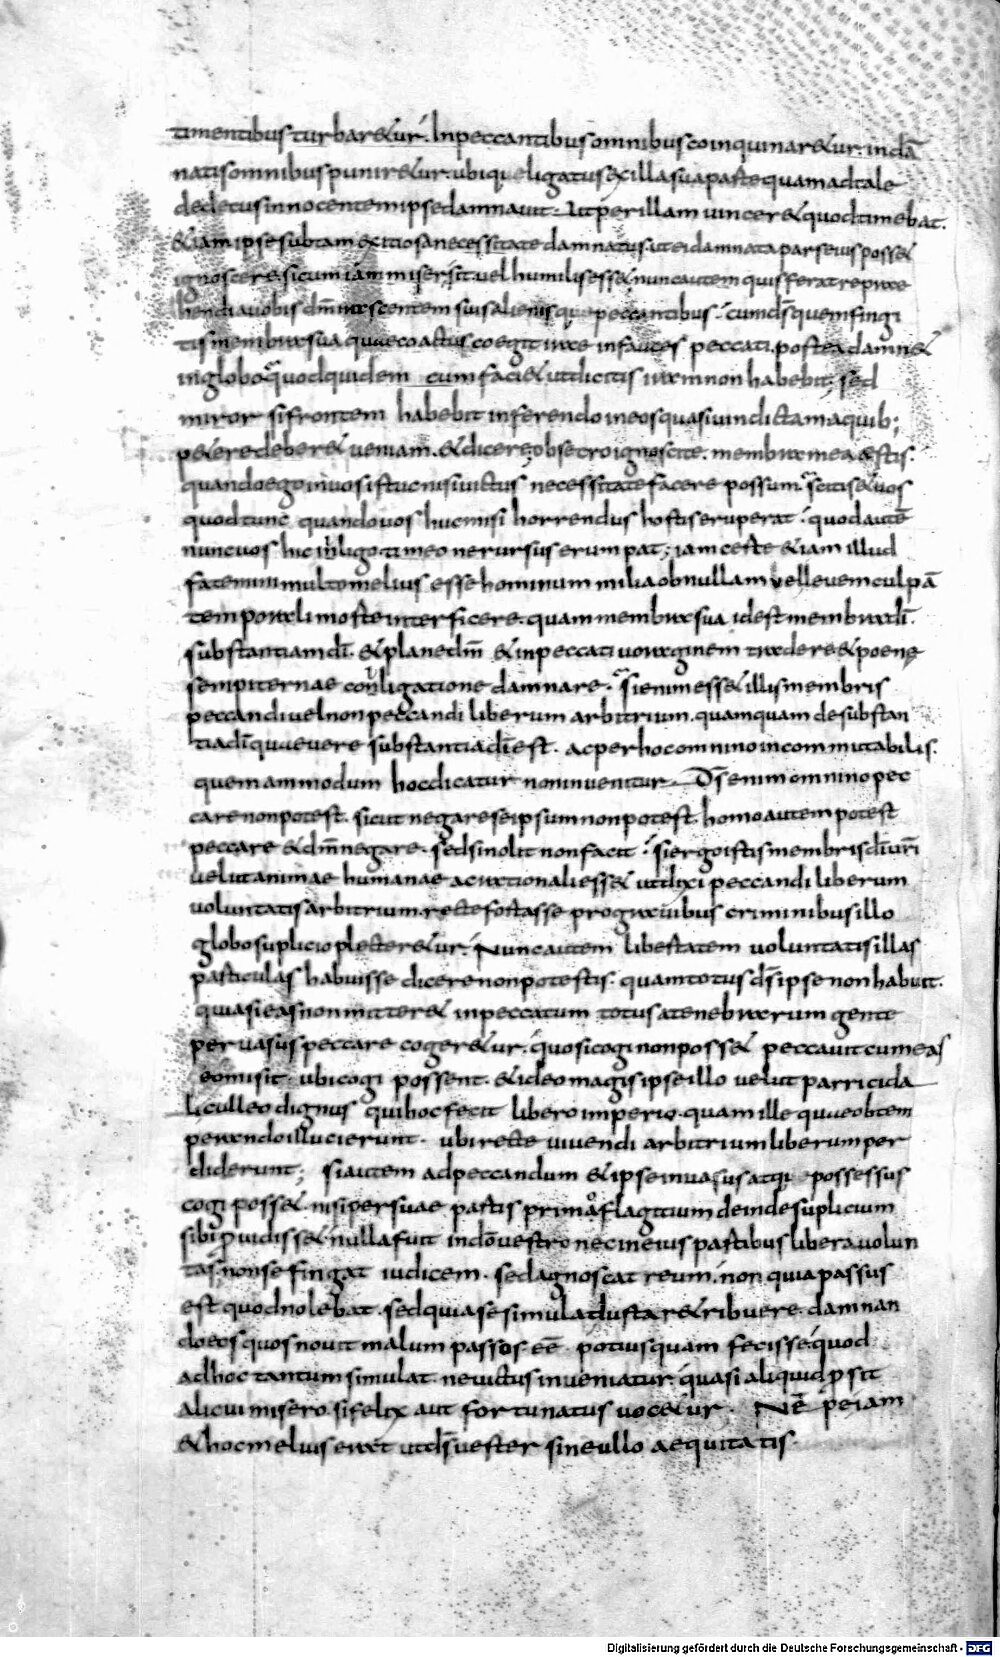 timentibus turbaretur. In peccantibus omnibus coinquinaretur. in dā
natis omnibus puniretur. ubique ligatus ex illa sua parte quam ad tale
dedetus innocentem ipse damnauit. Ut per illam uinceret quod timebat.
etiam ipse sub tam exitiosa necessitate damnatus. ut ei damnata pars eius posset
ignoscere. si cum iam miser sit uel humilis esset nunc autem quis ferat repre
hendi a uobis dm̄ irascentem suis alienisque peccantibus. cum d̄s quem fingi
tis membra sua quae coactus coegit ire in fauces peccati. postea damnet
in globo quod quidem cum faciet ut dicitis iram non habebit; sed
miror si frontem habebit inferendo in eos quasi uindictam a quib;
petere deberet ueniam. et dicere. obsecro ignoscite. membra mea estis.
quando ego in uos istuc nisi uictus necessitate facere possum. scitis et uos
quod tunc quando uos huc misi horrendus hostis eruperat. quod autē
nunc uos hic inligo timeo ne rursus erumpat; iam certe etiam illud
fatemini multo melius esse hominum milia ob nullam uel leuem culpā
temporali morte interficere. quam membra sua id est membra dī.
substantiam dī. et plane dm̄ et in peccati uoraginem tradere et poenę
sempiternae conligatione damnare. Si enim esset illis membris
peccandi uel non peccandi liberum arbitrium. quamquam de substan
tia dī quae uere substantia dī est. ac per hoc omnino incommutabilis.
quemammodum hoc dicatur non inuenitur. D̄s enim omnino pec
care non potest. sicut negare seipsum non potest. homo autem potest
peccare et dm̄ negare. sed si nolit non facit. si ergo istis membris dī urī
uelut animae humanae ac rationali esset ut dixi peccandi liberum
uoluntatis arbitrium. recte fortasse pro grauibus criminibus illo
globo suplicio plecteretur. Nunc autem libertatem uoluntatis illas
particulas habuisse dicere non potestis. quam totus d̄s ipse non habuit.
quasi eas non mitteret in peccatum totus a tenebrarum gente
peruasus peccare cogeretur. quo si cogi non posset peccauit cum eas
eo misit. ubi cogi possent. et ideo magis ipse illo uelut parricida
li culleo dignus qui hoc fecit libero imperio. quam ille quae obtem
perando illuc ierunt. ubi recte uiuendi arbitrium liberum per
diderunt; si autem ad peccandum et ipse inuasus atque possessus
cogi posset. nisi per suae partis primo flagitium deinde suplicium
sibi ꝓuidisset. nulla fuit in dō uestro nec in eius partibus libera uolun
tas. non se fingat iudicem. sed agnoscat reum. non quia passus
est quod nolebat. sed quia se simulat iusta retribuere. damnan
do eos quos nouit malum passos eē potius quam fecisse. quod
ad hoc tantum simulat. ne uictus inueniatur. quasi aliquid ꝓsit
alicui misero. si felix aut fortunatus uocetur. Nē peiam
et hoc melius erat ut d̄s uester sine ullo aequitatis.
Digitalisierung gefördert durch die Deutsche Forschungsgemeinschaft - DFG